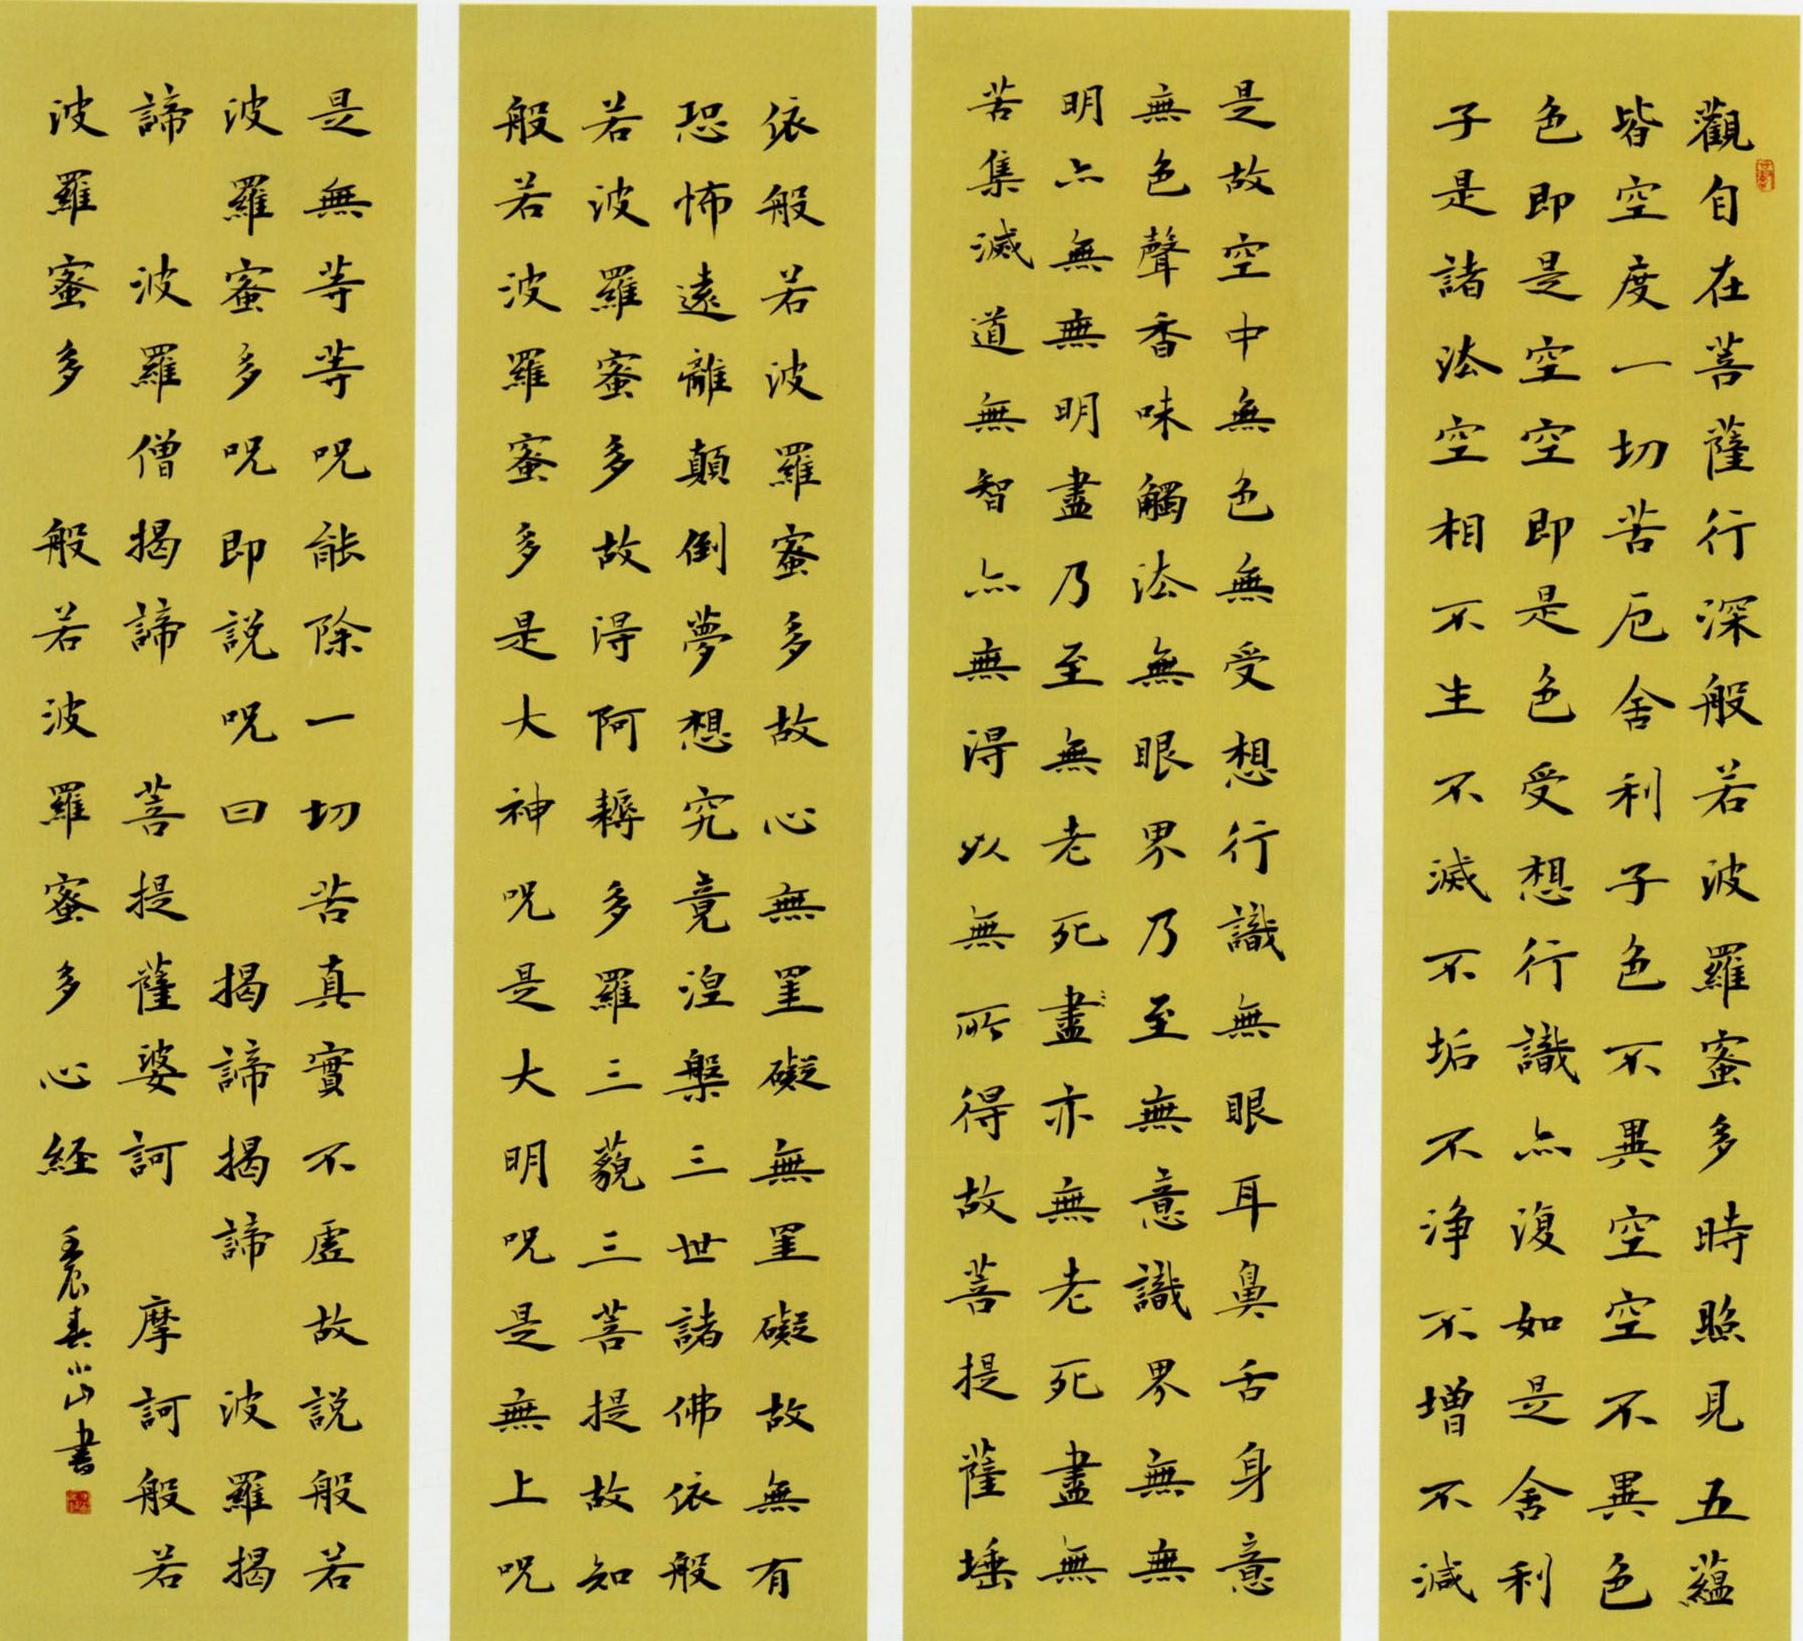 觀自在菩薩行深般若波羅蜜多時照見五蘊
皆空度一切苦厄舍利子色不異空空不異色
色即是空空即是色受想行識亦復如是舍利
子是諸法空相不生不滅不垢不淨不增不減
是故空中無色無受想行識無眼耳鼻舌身意
無色聲香味觸法無眼界乃至無意識界無無
明亦無無明盡乃至無老死盡亦無老死盡無
苦集滅道無智亦無得以無所得故菩提薩埵
依般若波羅蜜多故心無罣礙無罣礙故無有
恐怖遠離顛倒夢想究竟涅槃三世諸佛依般
若波羅蜜多故得阿耨多羅三藐三菩提故知
般若波羅蜜多是大神呪是大明呪是無上呪
是無等等呪能除一切苦真實不虛故說般若
波羅蜜多呪即說呪曰 揭諦揭諦 波羅揭
諦 波羅僧揭諦 菩提薩婆訶 摩訶般若
波羅蜜多 般若波羅蜜多心経
壬辰春小山書